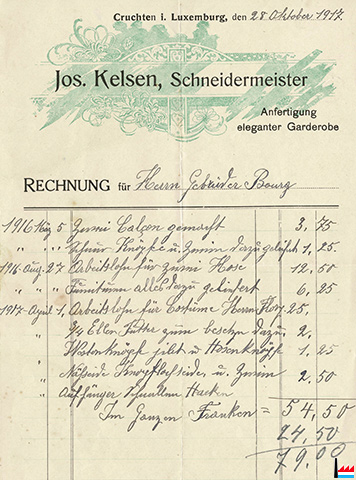 Cruchten i. Luxemburg, den 28 Oktober 1917.
Jos. Kelsen, Schneidermeister
Anfertigung
eleganter Garderobe
RECHNUNG für Herrn Gebrüder Bourg
1916 5 Zwei gemacht 3, 75
" " " Knöpfe u. Zwirn dazu geliefert 1, 25
1916 Aug. 27 Arbeitslohn für zwei Hose 12, 50
" " " alles dazu geliefert 6, 25
1917 April 1 Arbeitslohn für Costüme Herrn 25,
" Ellen Futter zum dazu 2,
" Westenknöpf u. Hosenknöpf 1 25
" Nähseide Knopflochseide, u. Zwirn 2, 50
" Aufhänger Schnallen Hacken
Im Ganzen Franken = 54, 50
24, 50
79,00